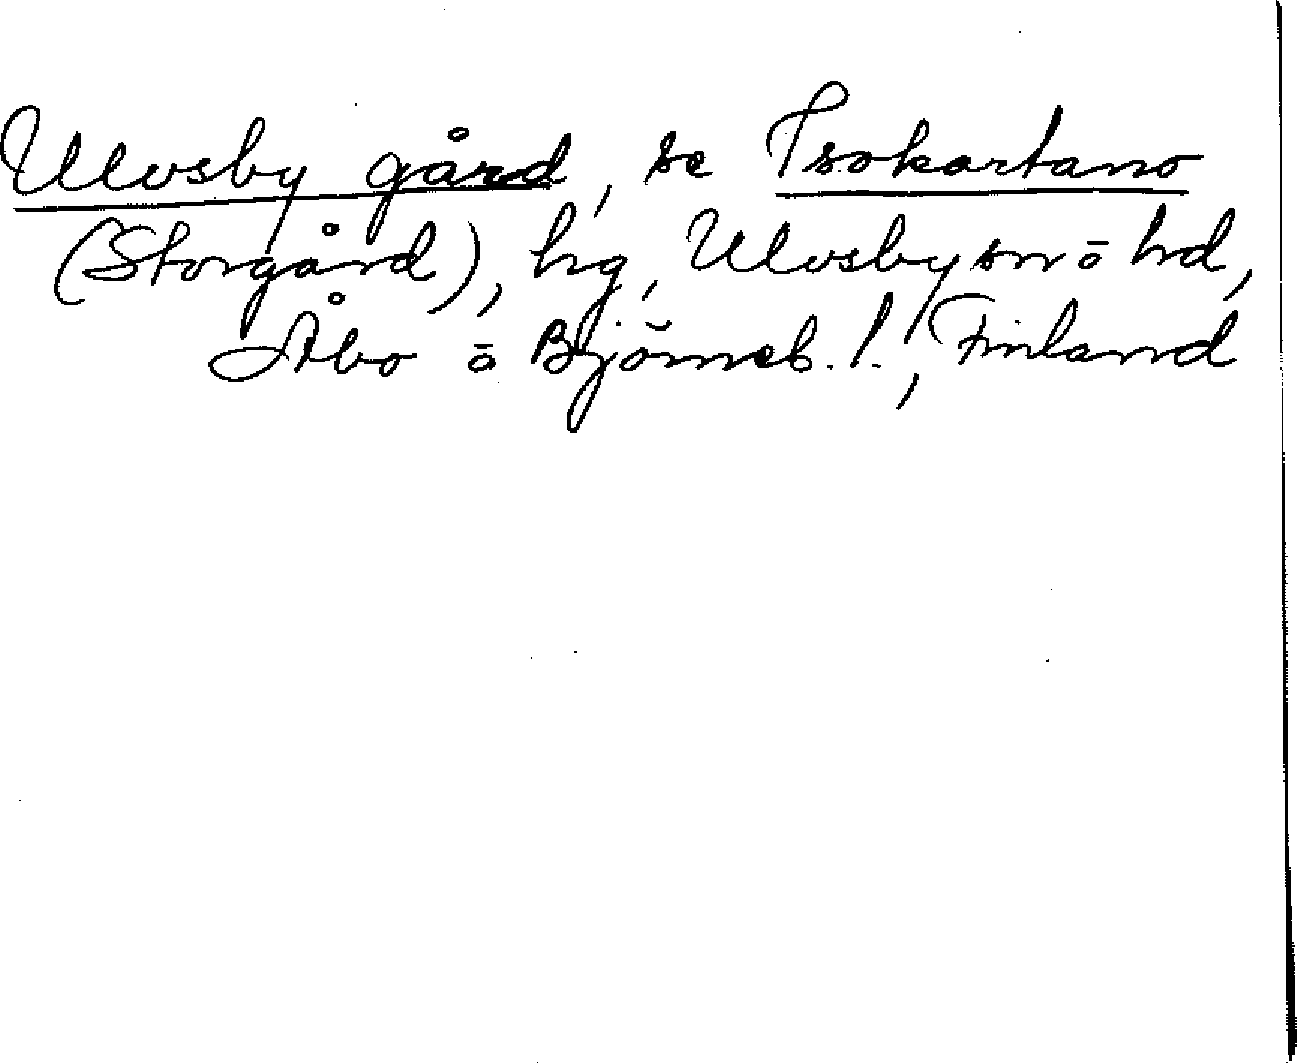 Ulvsby gård, se Isokartano
(Storgård), hg, Ulvsby sn o hd,
Åbo o Björneb. l., Finland